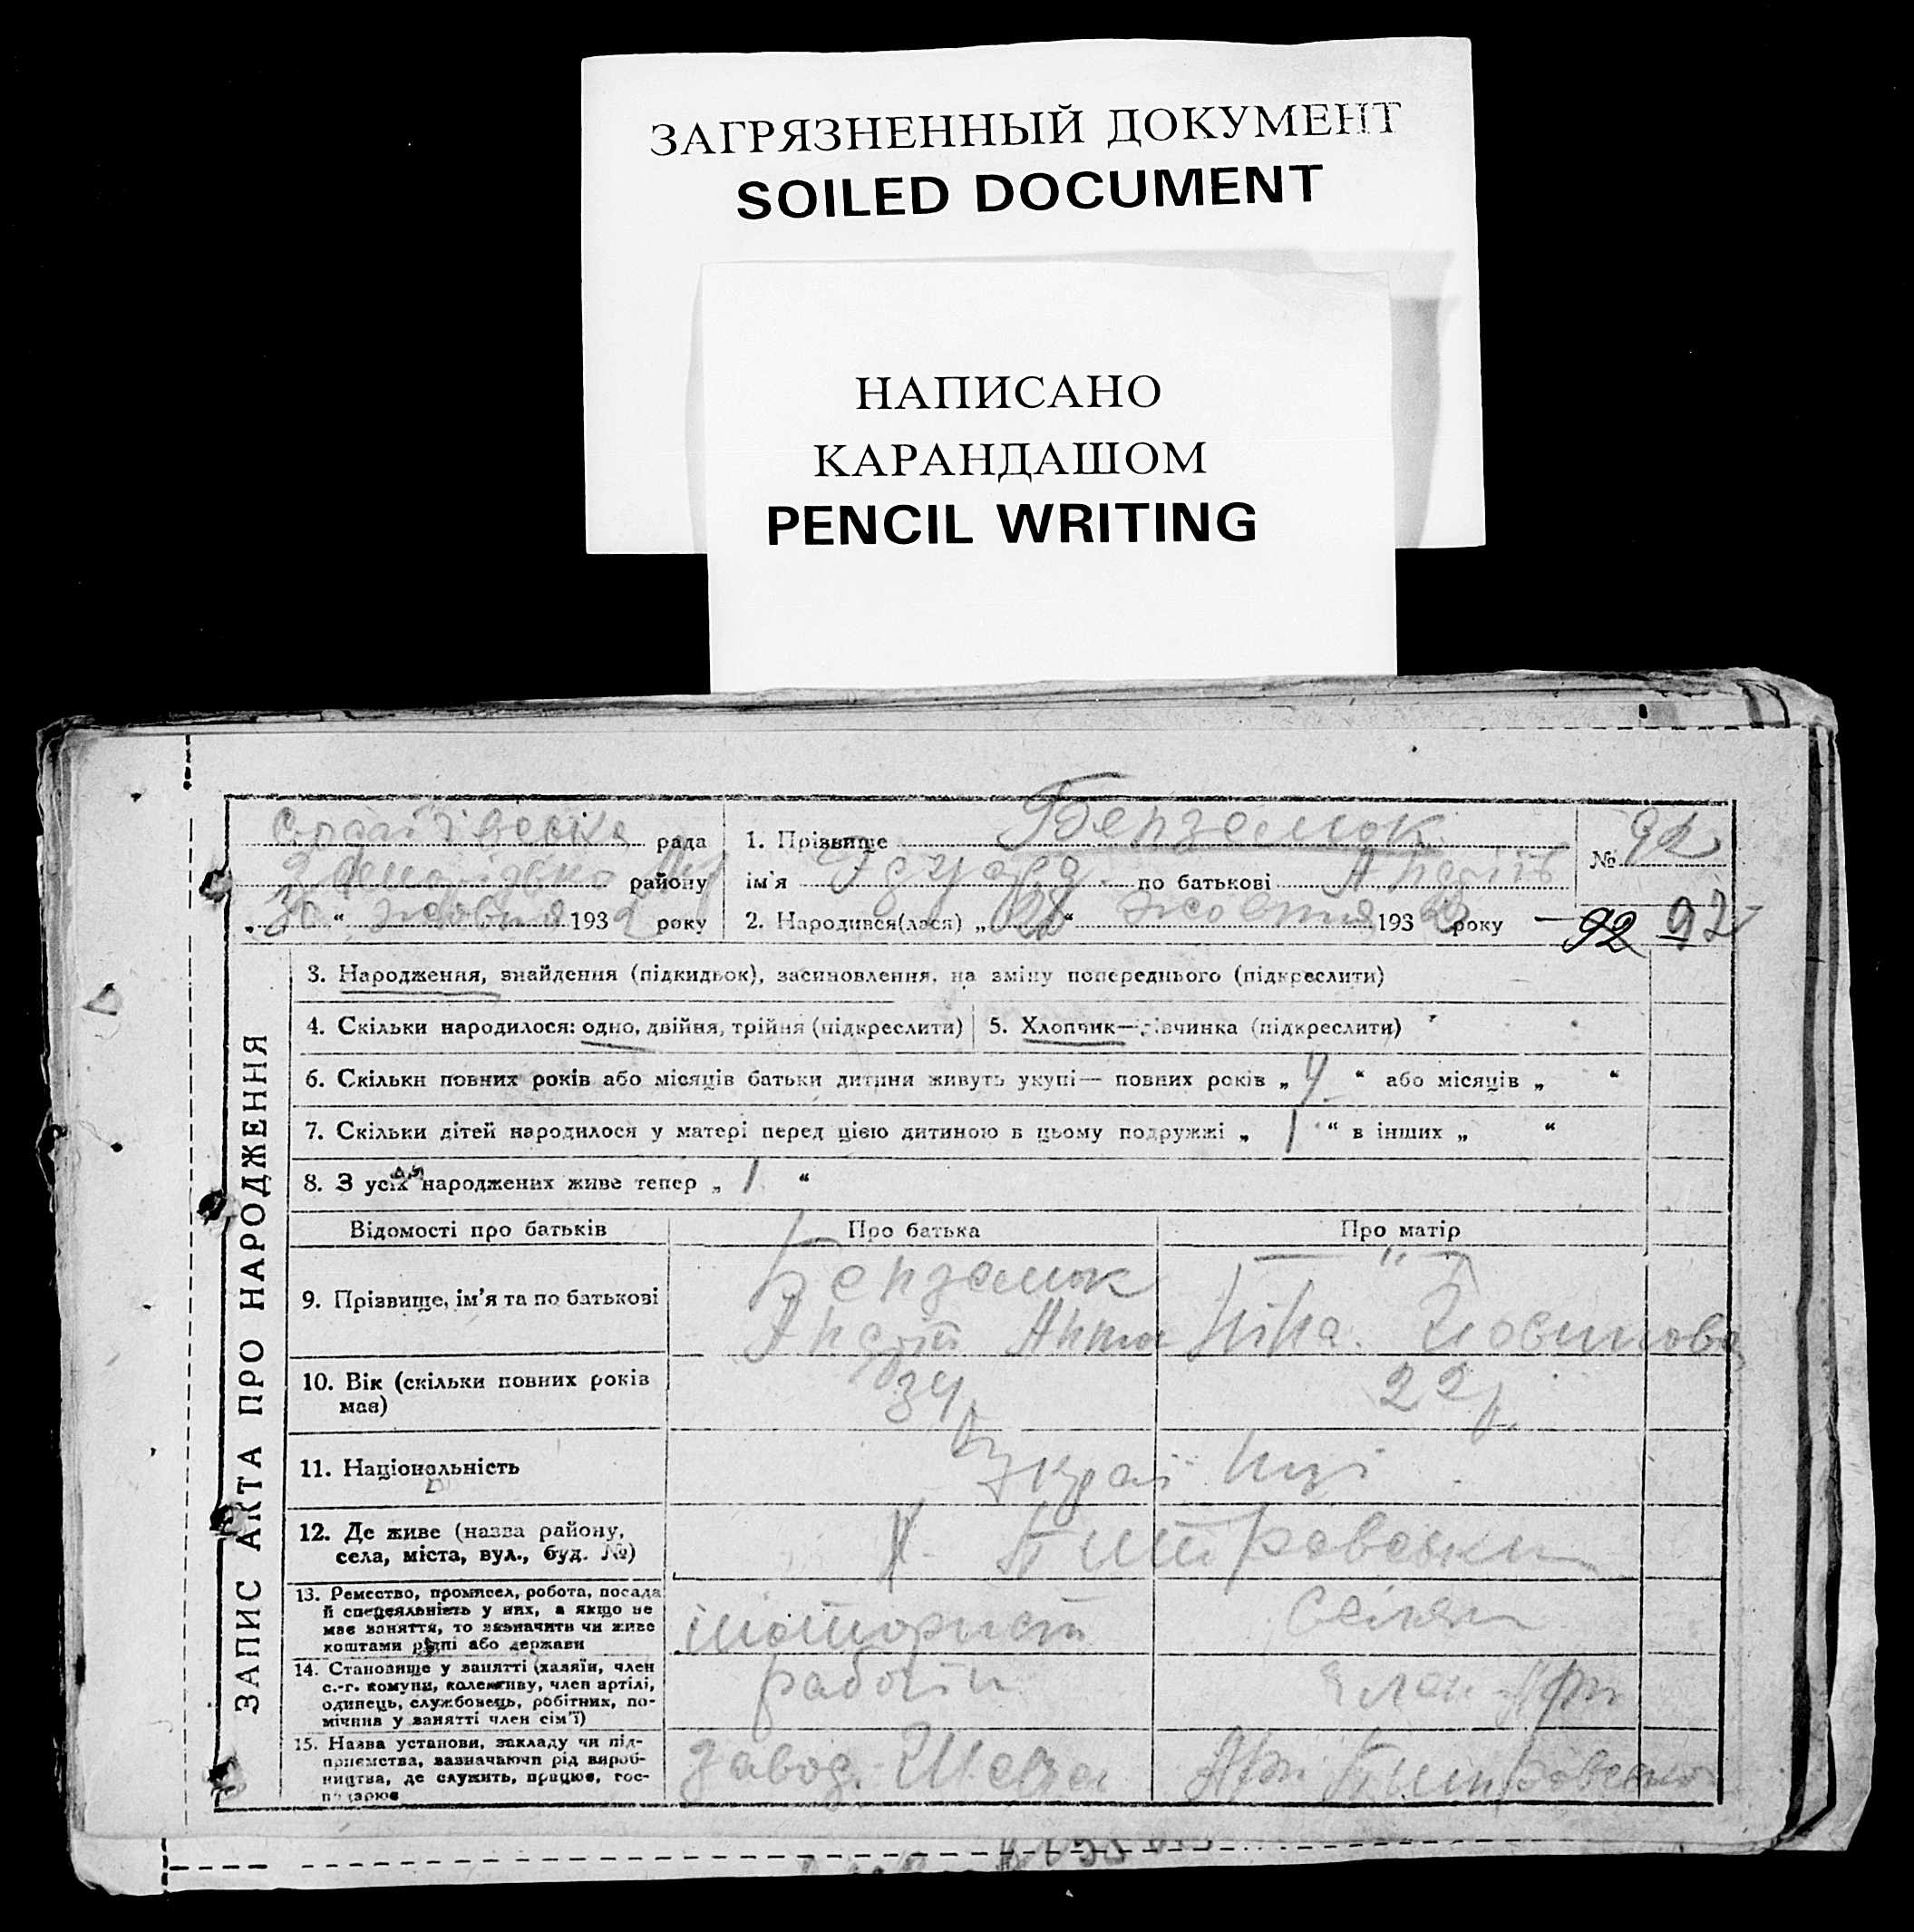 ЗАГРЯЗНЕННЫЙ ДОКУМЕНТ
SOILED DOCUMENT
НАПИСАНО
КАРАНДАШОМ
PENCIL WRITING
ЗАПИС АКТА ПРО НАРОДЖЕННЯ
рада
району
„30“ жовтня 1932 року
1. Прізвище Бензелюк
ім'я Едуард по батькові
2. Народився(лася) „28“ жовтня 1932 року
№ 92
92 92
3. Народження, знайдення (підкидьок), засиновлення, на зміну попереднього (підкреслити)
4. Скільки народилося: одно, двійня, трійня (підкреслити)
5. Хлопчик—дівчинка (підкреслити)
6. Скільки повних років або місяців батьки дитини живуть укупі— повних років „4“ або місяців „ “
7. Скільки дітей народилося у матері перед цією дитиною в цьому подружжі „1“ в інших „ “
8. З усіх народжених живе тепер „1“
Відомості про батьків
Про батька
Про матір
9. Прізвище, ім'я та по батькові
Бензелюк
— " —
10. Вік (скільки повних років
має)
34
22 р
11. Національність
Українці
12. Де живе (назва району,
села, міста, вул., буд. №)
13. Ремество, промисел, робота, посада
й спецеяльність у них, а якщо не
має заняття, то зазначити чи живе
коштами рідні або держави
моторист
селян
14. Становище у занятті (хазяїн, член
с.-г. комуни, колективу, член артілі,
одинець, службовець, робітник, по-
мічник у занятті член сім'ї)
член Арт
15. Назва установи, закладу чи під-
приємства, зазначаючи рід вироб-
ництва, де служить, працює, гос-
подарює
завод
Арт